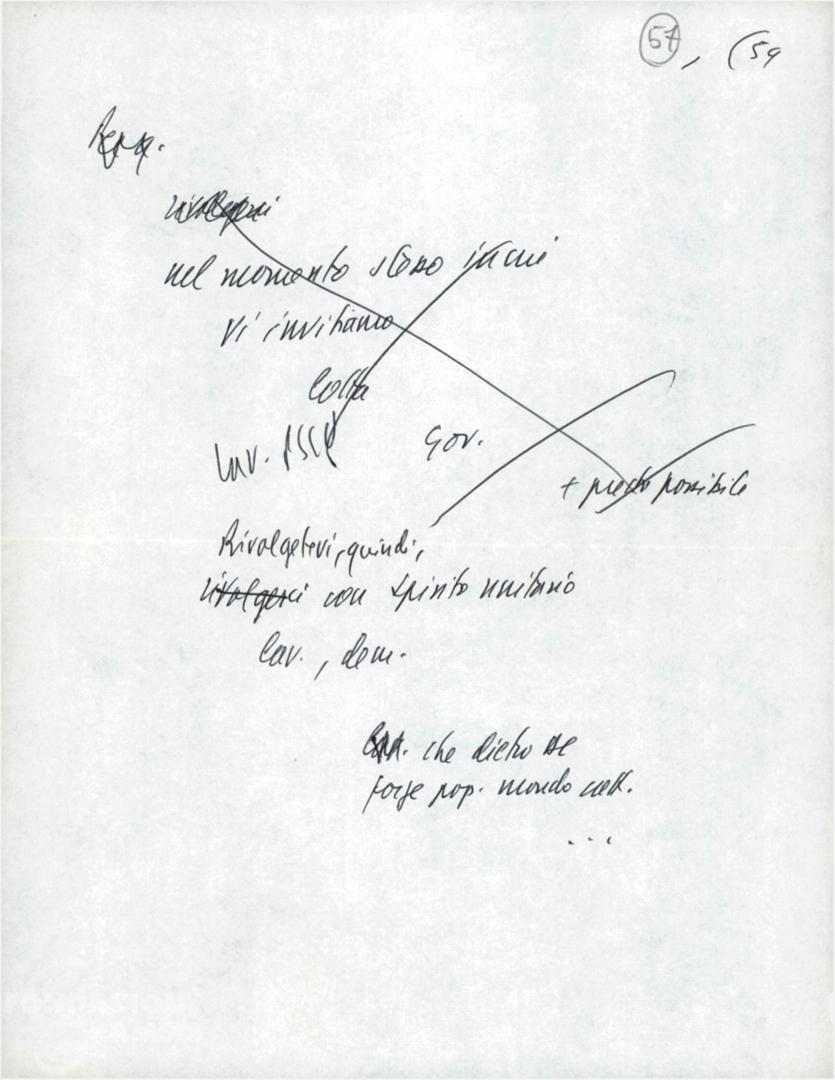 57, (59
rivolgersi
nel momento stesso in cui
vi invitiamo
lotta
Lav. PSSP
Gov.
+ presto possibile
Rivolgetevi, quindi,
rivolgerci con spirito unitario
Lav., dem.
che dietro se
forze pop. mondo catt.
...